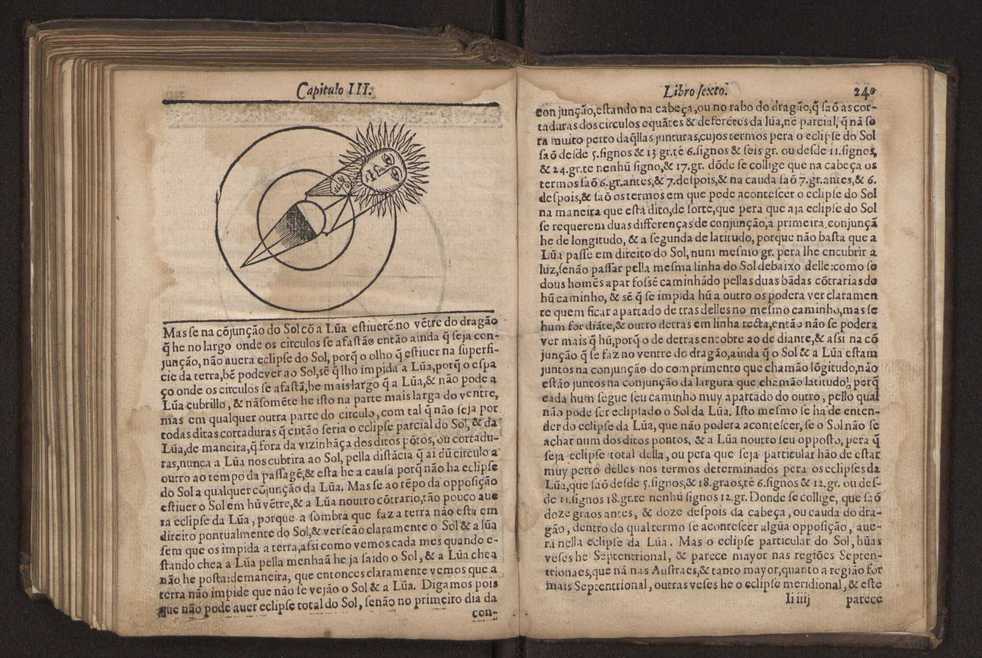 Capitulo III.
Mas se na cõjunção do Sol cõ a Lũa estiverẽ no vẽtre do dragão
q̃ he no largo onde os circulos se afastão então ainda q̃ seja con-
junção, não avera eclipse do Sol, porq̃ o olho q̃ estiver na superfi-
cie da terra, bẽ podever ao Sol, sẽ q̃ lho impida a Lũa, porq̃ o espa
ço onde os circulos se afastã, he mais largo q̃ a Lũa, & não pode a
Lũa cubrillo, & nãsomẽte he isto na parte mais larga do ventre,
mas em qualquer outra parte do circulo, com tal q̃ não seja por
todas ditas cortaduras q̃ então seria o eclipse parcial do Sol, & da
Lũa, de maneira, q̃ fora da vizinhãça des ditos põtos, ou cortadu-
ras, nunca a Lũa nos cubrira ao Sol, pella distãcia q̃ ai dũ circulo a
outro ao tempo da passagẽ, & esta he a causa porq̃ não ha eclipse
do Sol a qualquer cõjunção da Lũa. Mas se ao tẽpo da opposição
estiver o Sol em hũ vẽtre, & a Lũa noutro cõtrario, tão pouco ave
ra eclipse da Lũa, porque a sombra que faz a terra não esta em
direito pontualmente do Sol, & verseão claramente o Sol & a lũa
sem que os impida a terra, assi como vemos cada mes quando e-
stando chea a Lũa pella menhaã he ja saido o Sol, & a Lũa chea
não he posta: demaneira, que entonces claramente vemos que a
terra não impide que não se vejão o Sol & a Lũa. Digamos pois
que não pode aver eclipse total do Sol, senão no primeiro dia da
con-
Libro sexto.
240
conjunção, estando na cabeça, ou no rabo do dragão, q̃ sa õ as cor-
taduras dos circulos equãtes & deferẽtes da lũa, nẽ parcial, q̃ nã se
ra muito perto daq̃llas junturas, cujos termos pera o eclipse do Sol
sa õ desde 5. signos & 13 gr. tẽ 6. signos & seis gr. ou desde 11. signes,
& 24. gr. te nenhũ signo, & 17. gr. dõde se collige que na cabeça os
termos sa õ 6. gr. antes, & 7. despois, & na cauda sa õ 7. gr. antes, & 6.
despois, & sa õ os termos em que pode acontescer o eclipse do Sol
na maneira que esta dito, de sorte, que pera que aja eclipse do Sol
se requerem duas differenças de conjunção, a primeira conjunçã
he de longitudo, & a segunda de latitudo, porque não basta que a
Lũa passe em direito do Sol, num mesmo gr. pera lhe encubrir a
luz, senão passar pella mesma linha do Sol debaixo delle: como se
dous homẽs a par fossẽ caminhãdo pellas duas bãdas cõtrarias do
hũ caminho, & sẽ q̃ se impida hũ a outro os podera ver claramen
te quem ficar apartado de tras delles no mesmo caminho, mas se
hum for diãte, & outro detras em linha recta, então não se podera
ver mais q̃ hũ, porq̃ o de detras encobre ao de diante, & assi na cõ
junção q̃ se faz no ventre do dragão, ainda q̃ o Sol & a Lũa estam
juntos na conjunção do comprimento que chamão lõgitudo, não
estão juntos na conjunção da largura que chamão latitudo, porq̃
cada hum segue seu caminho muy apartado do outro, pello qual
não pode ser eclipsado o Sol da Lũa. Isto mesmo se ha de enten-
der do eclipse da Lũa, que não podera acontescer, se o Sol não se
achar num dos ditos pontos, & a Lũa noutro seu opposto, pera q̃
seja eclipse total della, ou pera que seja particular hão de estar
muy perto delles nos termos determinados pera os eclipses da
Lũa, que sa õ desde 5. signos, & 18. graos, tẽ 6. signos & 12. gr. ou des-
de 11. signos 18. gr. te nenhũ signos 12. gr. Donde se collige, que sa õ
doze graos antes, & doze despois da cabeça, ou cauda do dra-
gão, dentro do qual termo se acontescer algũa opposição, ave-
ra nella eclipse da Lũa. Mas o eclipse particular do Sol, hũas
veses he Septentrional, & parece mayor nas regiões Septen-
trionaes, que nã nas Austraes, & tanto mayor, quanto a região for
mais Septentrional, outras veses he o eclipse meridional, & este
Ii iiij
parece